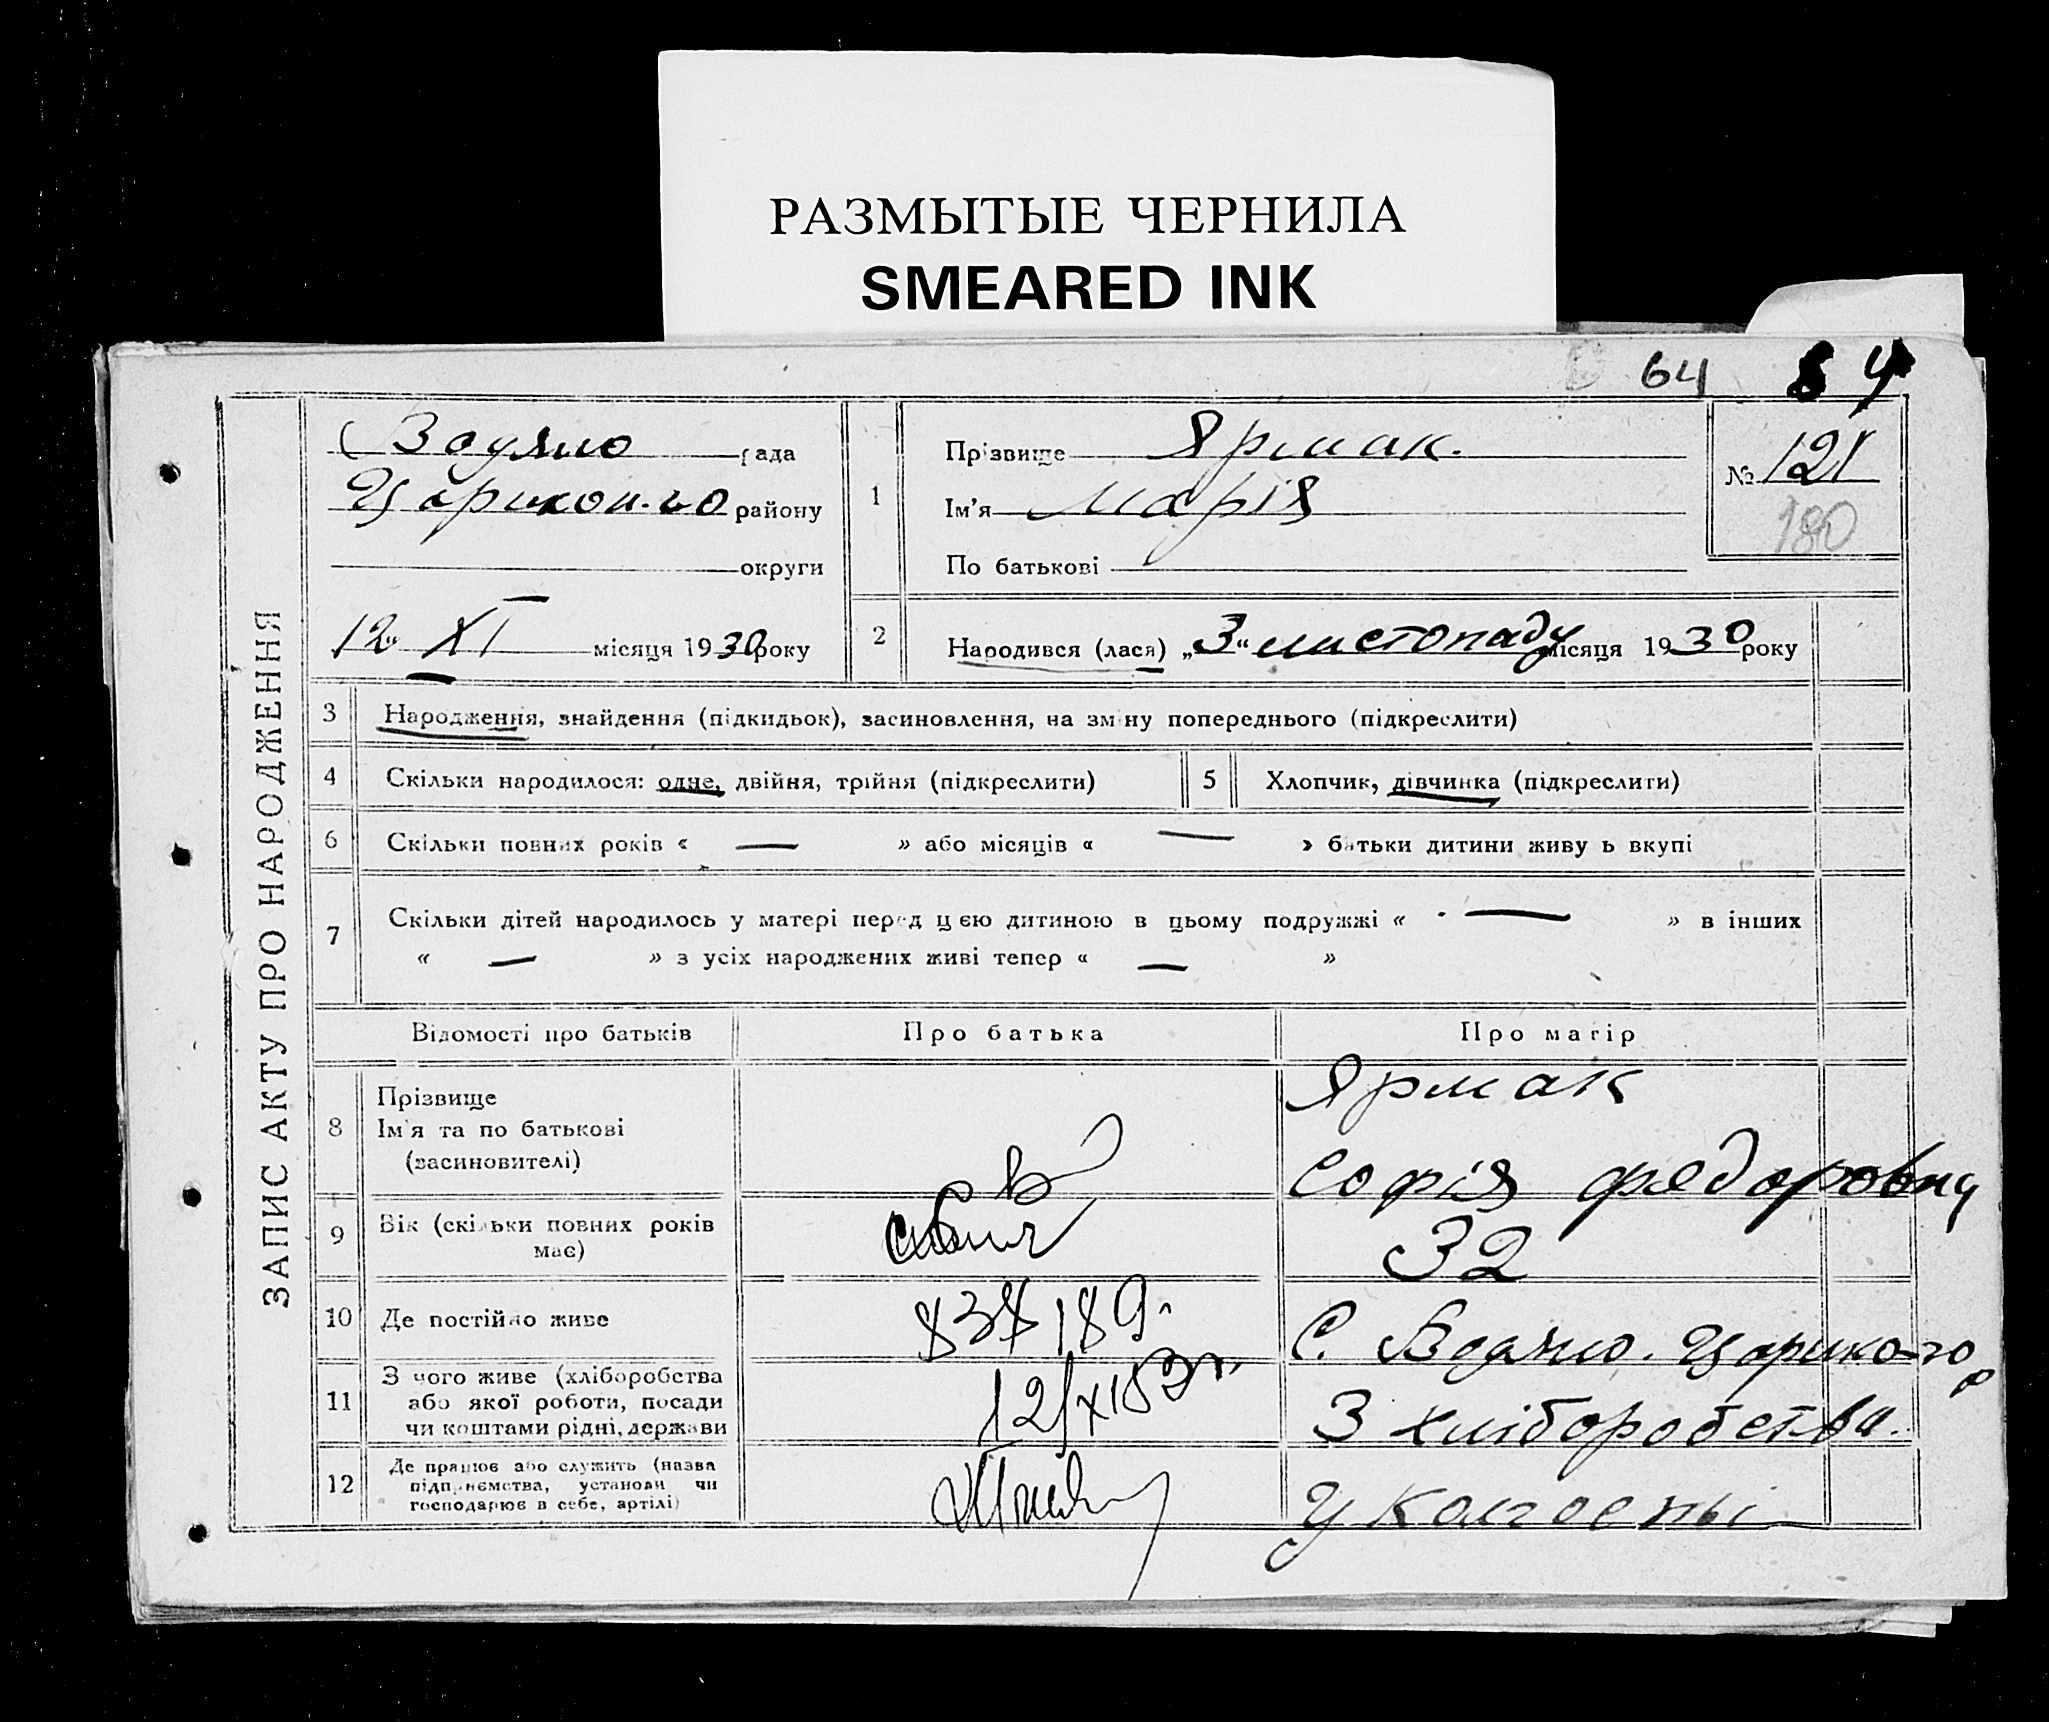 РАЗМЫТЫЕ ЧЕРНИЛА
SMEARED INK
64
ЗАПИС АКТУ ПРО НАРОДЖЕННЯ
Водяно рада
Царикон-го району
округи
12 " XI місяця 1930 року
1
Прізвище Ярмак.
Ім'я Марія
По батькові
№ 121
180
2
Народився (лася) „3“ листопаду місяця 1930 року
3 Народження, знайдення (підкидьок), засиновлення, на зміну попереднього (підкреслити)
4 Скільки народилося: одне, двійня, трійня (підкреслити)
5 Хлопчик, дівчинка (підкреслити)
6 Скільки повних років « — » або місяців « — » батьки дитини живуть вкупі
7 Скільки дітей народилось у матері перед цією дитиною в цьому подружжі « — » в інших
« — » з усіх народжених живі тепер « — »
Відомості про батьків Про батька Про матір
8 Прізвище
Ім'я та по батькові
(засиновителі)
Ярмак
Софія Федоровна
9 Вік (скільки повних років
має)
32
10 Де постійно живе
С. Водяно. Царико-го р
11 З чого живе (хліборобства
або якої роботи, посади
чи коштами рідні, держави
З хліборобства.
12 Де працює або служить (назва
підприємства, установи чи
господарює в себе, артілі)
у колгоспі